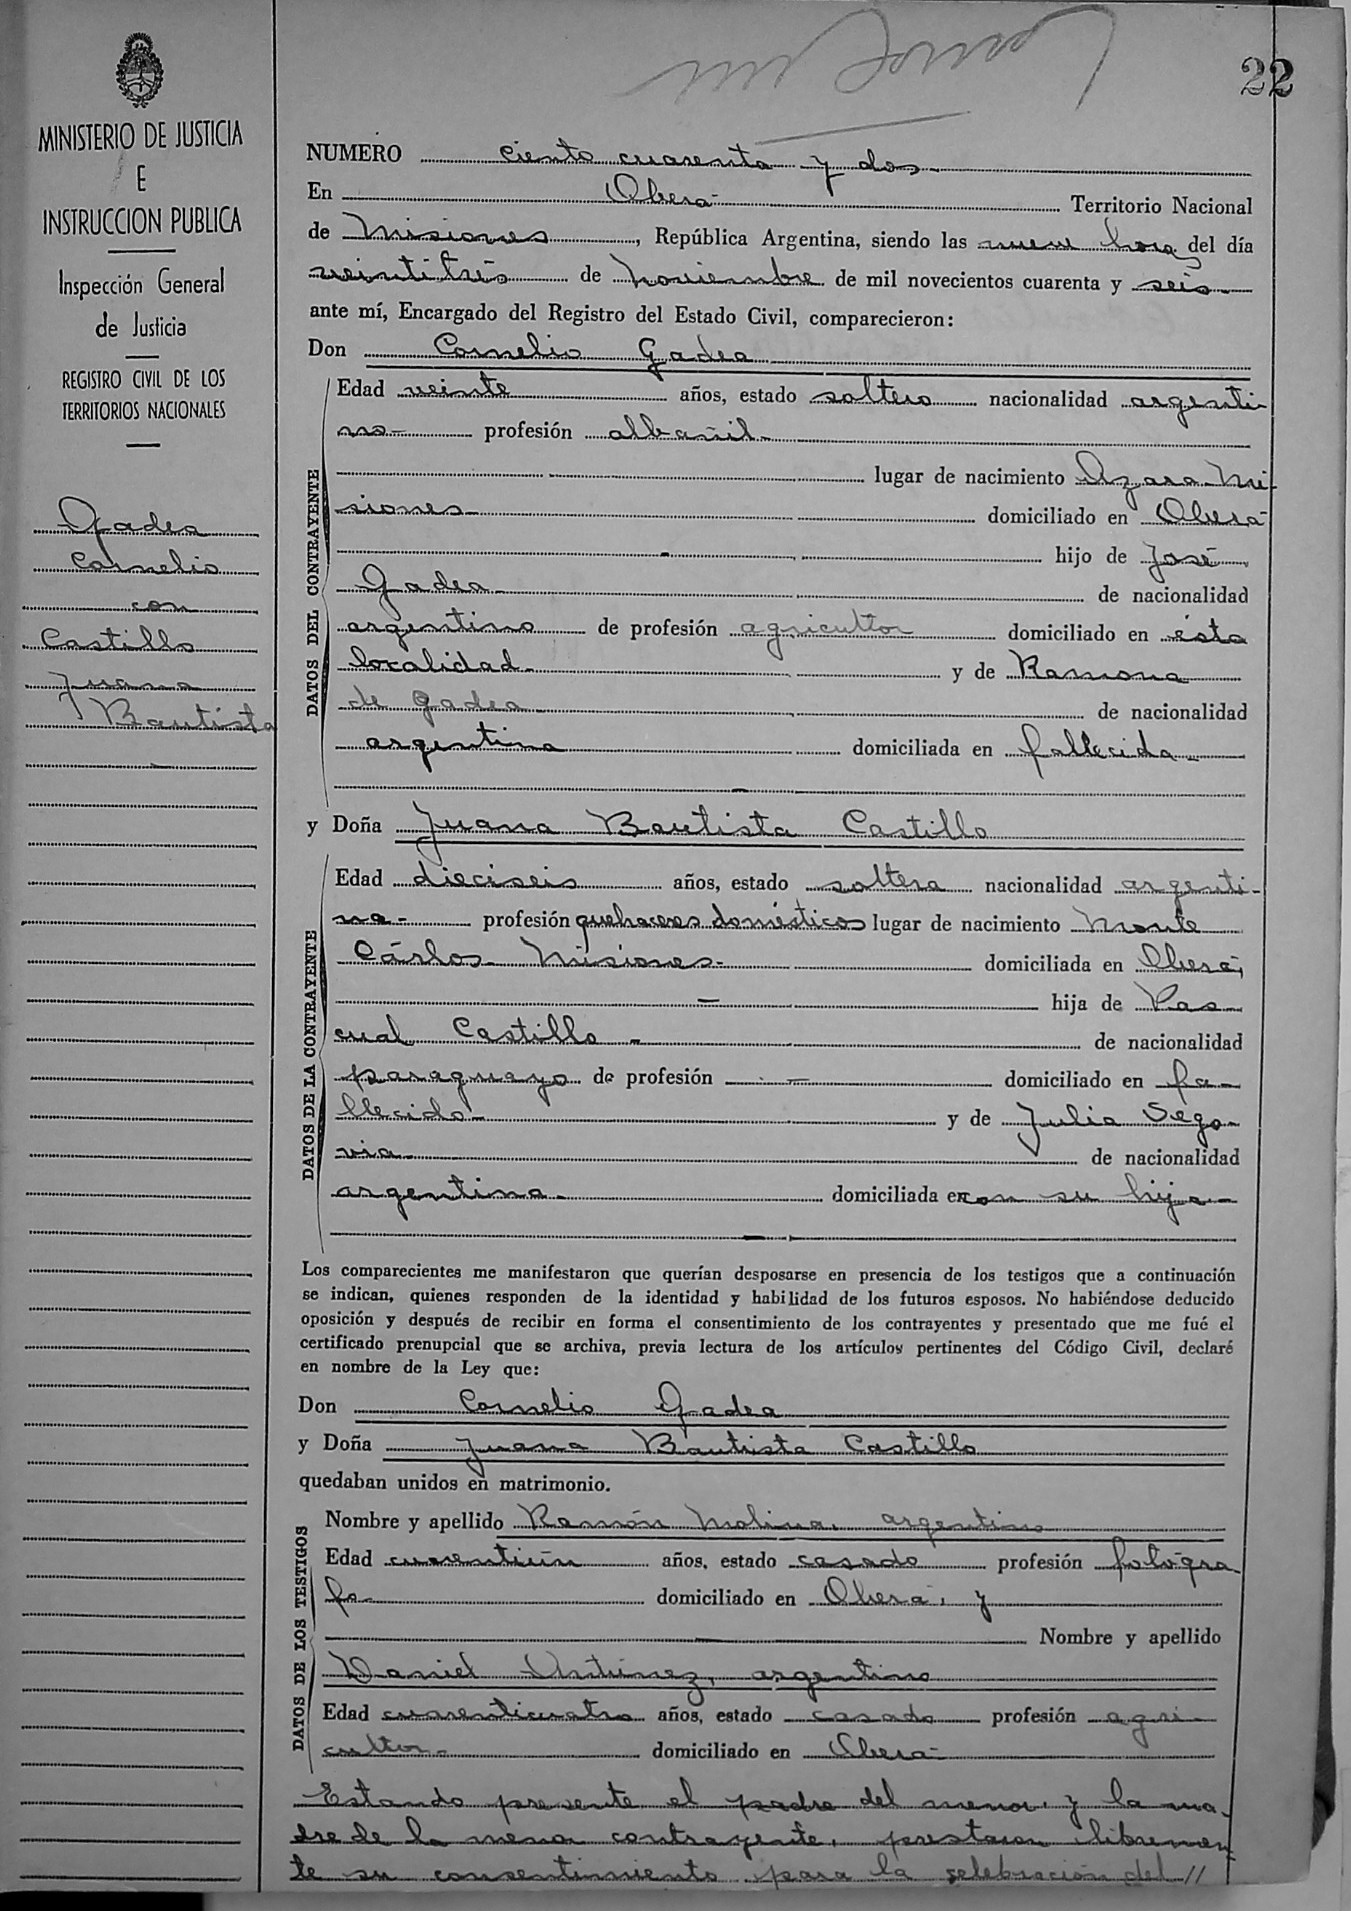 22
MINISTERIO DE JUSTICIA
E
INSTRUCCION PUBLICA
Inspección General
de Justicia
REGISTRO CIVIL DE LOS
TERRITORIOS NACIONALES
Gadea
Cornelio
con
Castillo
Juana
Bautista
NUMERO ciento cuarenta y dos
En Oberá Territorio Nacional
de Misiones, República Argentina, siendo las nueve horas del día
veintitrés de Noviembre de mil novecientos cuarenta y seis
ante mí, Encargado del Registro del Estado Civil, comparecieron:
Don Cornelio Gadea
DATOS DEL CONTRAYENTE
Edad veinte años, estado soltero nacionalidad argenti-
no- profesión albañil-
lugar de nacimiento Azara-Mi
siones- domiciliado en Oberá
hijo de José
Gadea de nacionalidad
argentino de profesión agricultor domiciliado en ésta
localidad- y de Ramona
de Gadea de nacionalidad
argentina domiciliada en fallecida-
y Doña Juana Bautista Castillo
DATOS DE LA CONTRAYENTE
Edad dieciseis años, estado soltera nacionalidad argenti-
na- profesión quehaceres domésticos lugar de nacimiento Monte
Cárlos- Misiones- domiciliada en Oberá,
hija de Pas
cual Castillo - de nacionalidad
paraguayo de profesión - domiciliado en fa-
llecido- y de Julia Sego-
via- de nacionalidad
argentina- domiciliada en con su hija-
Los comparecientes me manifestaron que querían desposarse en presencia de los testigos que a continuación
se indican, quienes responden de la identidad y habilidad de los futuros esposos. No habiéndose deducido
oposición y después de recibir en forma el consentimiento de los contrayentes y presentado que me fué el
certificado prenupcial que se archiva, previa lectura de los artículos pertinentes del Código Civil, declaré
en nombre de la Ley que:
Don Cornelio Gadea
y Doña Juana Bautista Castillo
quedaban unidos en matrimonio.
DATOS DE LOS TESTIGOS
Nombre y apellido Ramón Molina, argentino
Edad cuarentiún años, estado casado profesión fotógra
fo- domiciliado en Oberá, y
Nombre y apellido
Daniel Antunez, argentino
Edad cuarenticuatro años, estado casado profesión agri-
cultor- domiciliado en Oberá-
Estando presente el padre del menor y la ma-
dre de la menor contrayente, prestaron libremen
te su consentimiento para la celebración del //